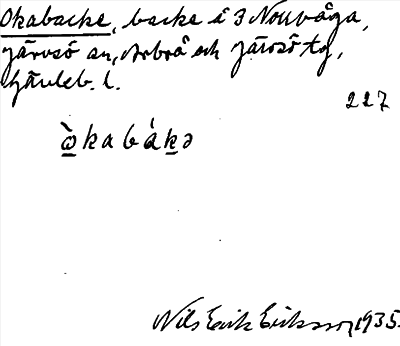 Okabacke, backe i 3 Nouvåga,
Järvsö sn, Arbrå och Järvsö tg,
Gävleb. l.
227
ò̱kabákə
Nils Erik Eriksson 1935.